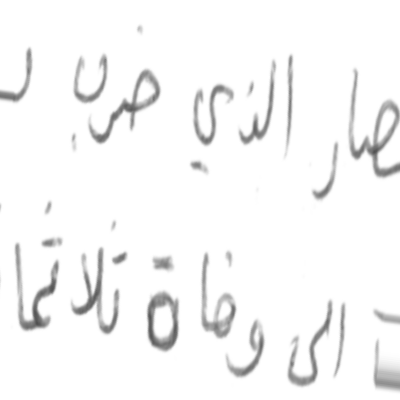 صار الذي ضرب
الى وفاة ثلاثما